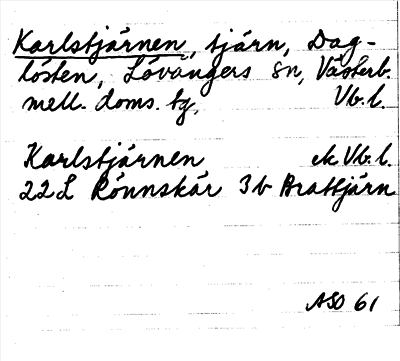 Karlstjärnen, tjärn, Dag-
lösten, Lövångers sn, Västerb.
mell. doms. tg, Vb. l.
Karlstjärnen ek Vb. l.
22L Rönnskär 3b Brattjärn
ASO 61